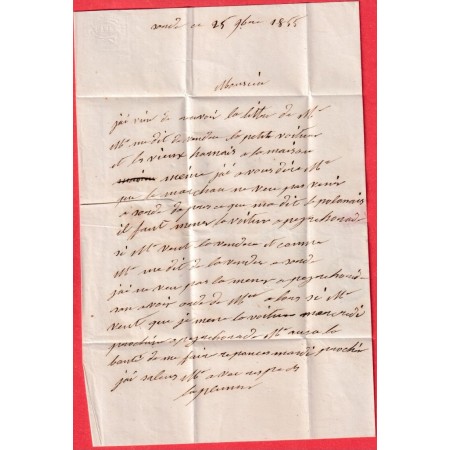 ce 25 9bre 1855
Monsieur
j'ai de la lettre de Mr
Mr me dit de vendre la petit voiture
et les vieux harnais a la maison
meme j'ai a vous dire Mr
que le marchau ne veu pas venir
a parce que ma dit le polonais
il faut mener la voiture a peyrehorade
si Mr veut la vendre et comme
Mr me dit de la vendre a
je ne veu pas la mener a peyrehorade
san avoir ordre de Mr alors si Mr
veut que je mene la voiture mercredi
prochain a peyrehorade Mr aura la
bonté de me fair reponce mardi prochin
j'ai salue Mr avec respec